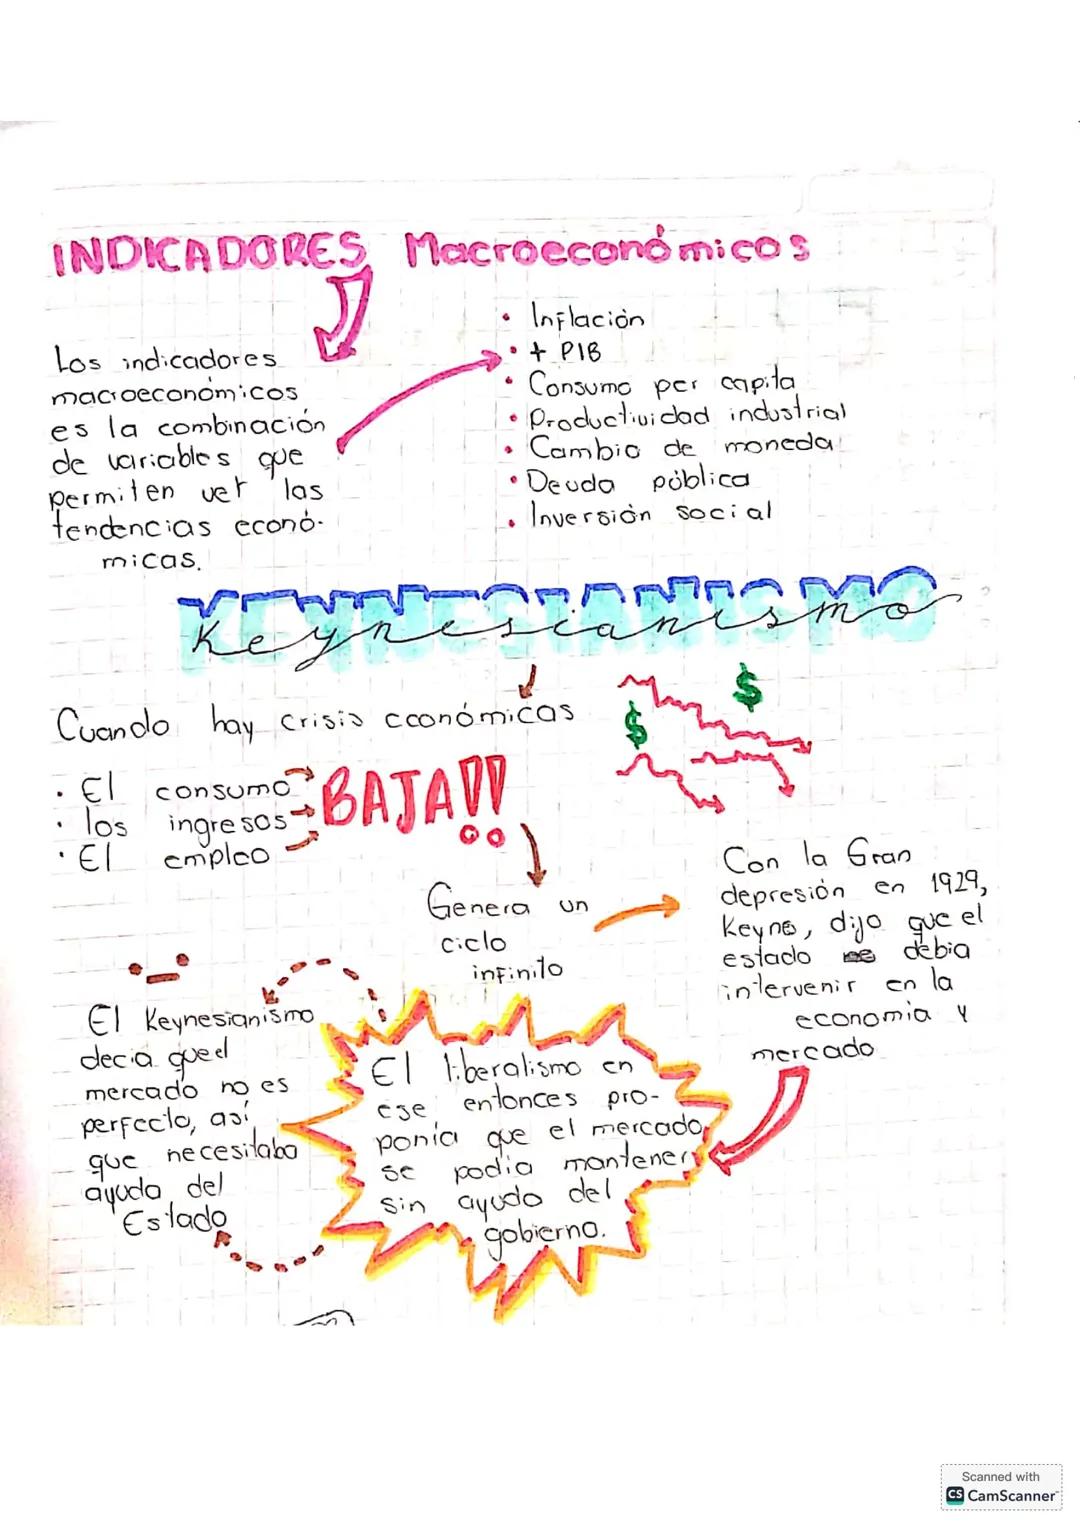 INDICADORES Macroeconómicos
Los indicadores
macroeconómicos
es la combinación
de variables que
permiten ver las
tendencias econó-
micas.
• Inflación
• + PIB
• Consumo per capita
• Productividad industrial
• Cambio de moneda
• Deuda pública
• Inversión social
KEYNESIANISMO
Keynesianismo
Cuando hay crisis económicas
$
$
• El consumo
• los ingresos
• El empleo
BAJA!!
Genera un
ciclo
infinito
Con la Gran
depresión en 1929,
Keynes, dijo que el
estado debia
intervenir en la
economia y
mercado
El Keynesianismo
decia que el
mercado no es
perfecto, así
que necesitaba
ayuda del
Estado
El liberalismo en
ese entonces pro-
ponía que el mercado
se podia mantener
sin ayuda del
gobierno.
Scanned with
CS CamScanner